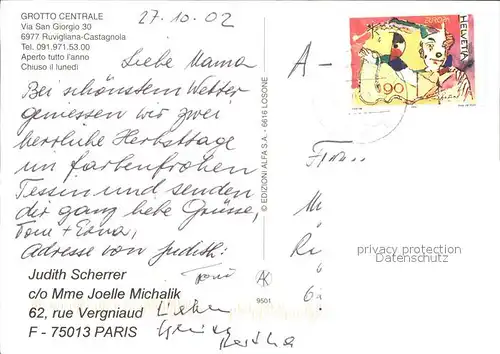 GROTTO CENTRALE
Via San Giorgio 30
6977 Ruvigliana-Castagnola
Tel. 091.971.53.00
Aperto tutto l'anno
Chiuso il lunedì
27.10.02
Liebe Mama
Bei schönstem Wetter
geniessen wir zwei
herrliche Herbsttage
im farbenfrohen
Tessin und senden
dir ganz liebe Grüsse,
Toni + Erna,
Adresse von Judith:
Toni
Judith Scherrer
c/o Mme Joelle Michalik
62, rue Vergniaud
F - 75013 PARIS
Lieben
Gruss
© EDIZIONI ALFA S.A. - 6616 LOSONE
AK
9501
A -
EUROPA
HELVETIA
90
privacy protection
AnsichtskartenVersand.com